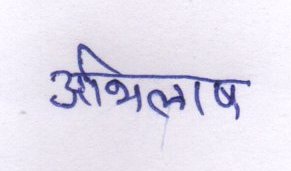 अभिलाष